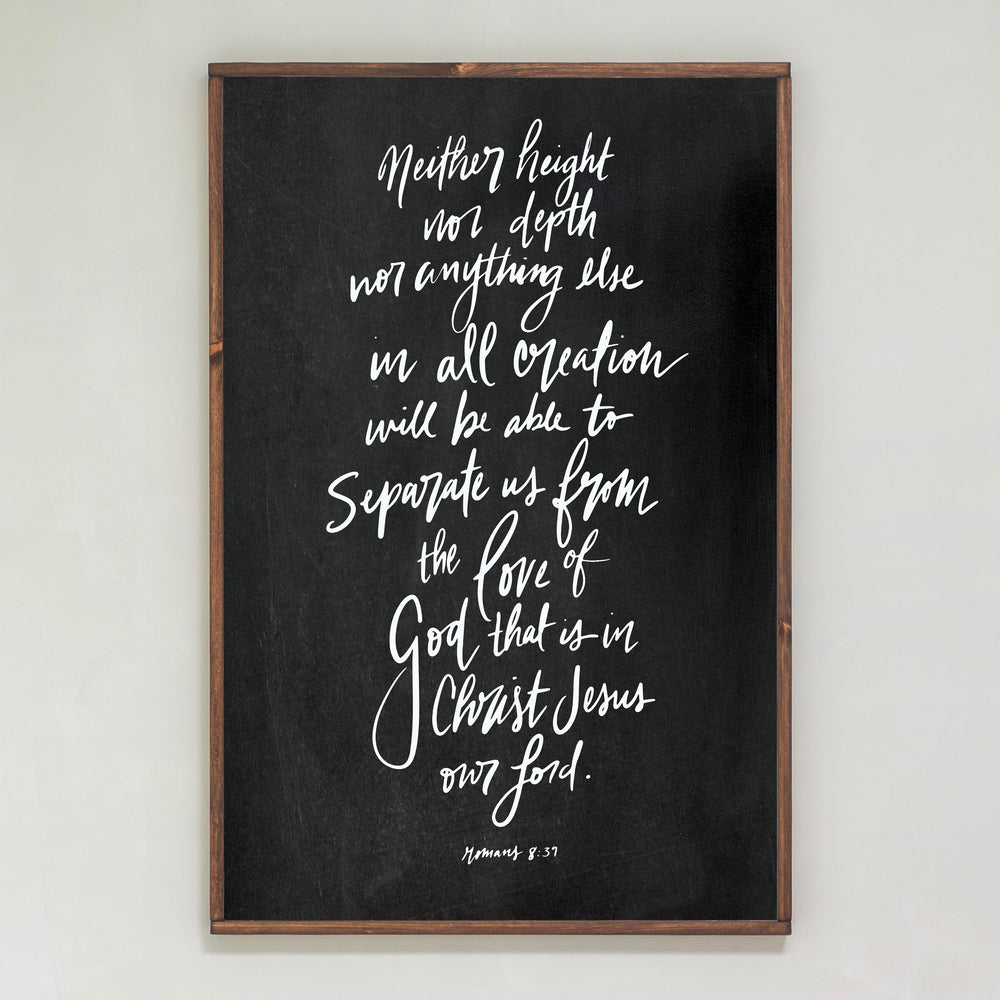 Neither height
nor depth
nor anything else
in all creation
will be able to
Separate us from
the love of
God that is in
Christ Jesus
our Lord.
Romans 8:39